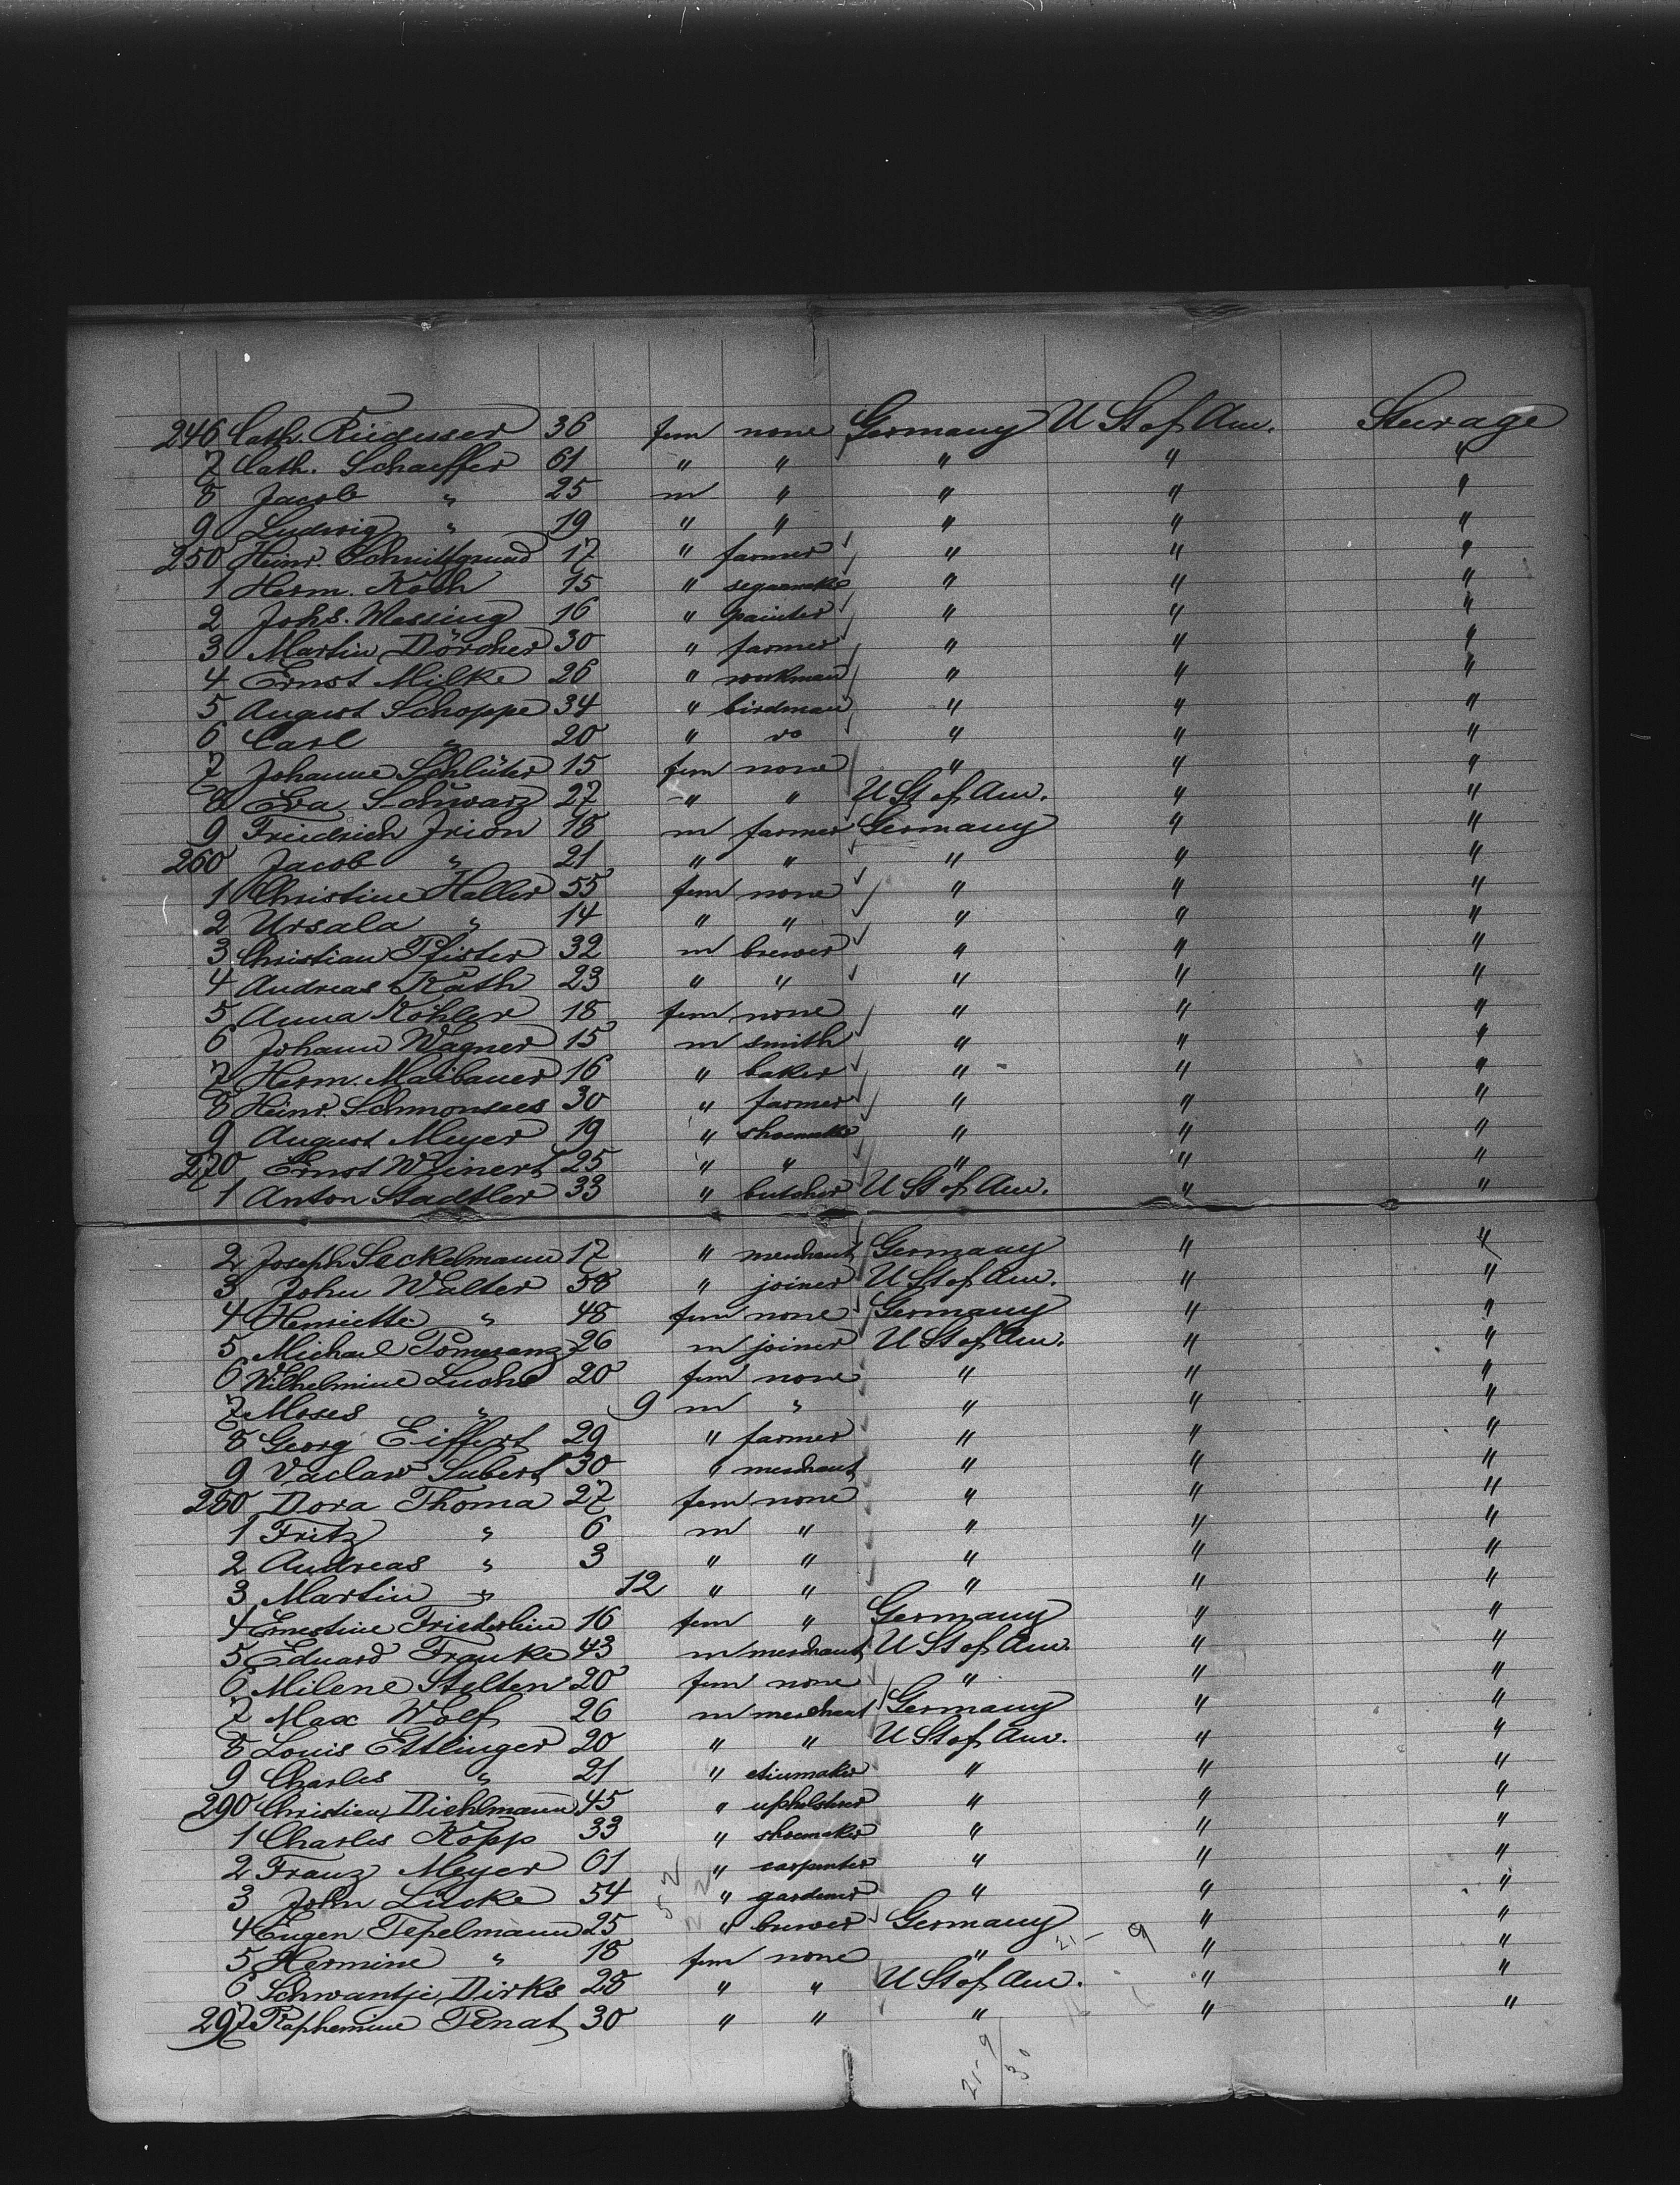 246 Cath. Riedesser 36 fem none Germany U St of Am. Steerage
7 Cath. Schaeffer 61 " " " " "
8 Jacob " 25 m " " " "
9 Ludwig " 19 " " " " "
250 Heinr. Schnittgrund 17 " farmer " " "
1 Herm. Koch 15 " segarmaker " " "
2 Johs. Messing 16 " painter " " "
3 Martin Dörcher 30 " farmer " " "
4 Ernst Milke 26 " workman " " "
5 August Schoppe 34 " birdman " " "
6 Carl " 20 " do " " "
7 Johanne Schlüter 15 fem none " " "
8 Eva Schwarz 27 " " U St of Am. " "
9 Friedrich Irion 18 m farmer Germany " "
260 Jacob " 21 " " " " "
1 Christine Haller 55 fem none " " "
2 Ursala " 14 " " " " "
3 Christian Pfister 32 m brewer " " "
4 Andreas Rath 23 " " " " "
5 Anna Köhler 18 fem none " " "
6 Johann Wagner 15 m smith " " "
7 Herm. Maibauer 16 " baker " " "
8 Heinr. Schmonsees 30 " farmer " " "
9 August Meyer 19 " shoemaker " " "
270 Ernst Weinert 25 " " " " "
1 Anton Stadtler 33 " butcher U St of Am. " "
2 Joseph Seckelmann 17 " merchant Germany " "
3 John Walter 58 " joiner U St of Am. " "
4 Henriette " 48 fem none Germany " "
5 Michael Pomeranz 26 m joiner U St of Am. " "
6 Wilhelmine Luchs 20 fem none " " "
7 Moses " 9 m " " " "
8 Georg Eiffert 29 " farmer " " "
9 Vaclaw Subert 30 " merchant " " "
280 Dora Thoma 27 fem none " " "
1 Fritz " 6 m " " " "
2 Andreas " 3 " " " " "
3 Martin " 12 " " " " "
4 Ernestine Friederlein 16 fem " Germany " "
5 Eduard Franke 43 m merchant U St of Am. " "
6 Milene Stelten 20 fem none " " "
7 Max Wolf 26 m merchant Germany " "
8 Louis Ettlinger 20 " " U St of Am. " "
9 Charles " 21 " etiumaker " " "
290 Christian Diehlmann 45 " upholsterer " " "
1 Charles Kopp 33 " shoemaker " " "
2 Franz Meyer 61 " carpenter " " "
3 John Lücke 54 " gardener " " "
4 Eugen Tepelmann 25 " brewer Germany " "
5 Hermine " 18 fem none " " "
6 Schwantje Dirks 28 " " U St of Am. " "
297 Raphemine Penat 30 " " " " "